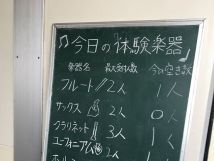 ♫今日の体験楽器♩
楽器名 最大受付人数 今の空き数
フルート 2人 1人
サックス 2人 0人
クラリネット 3人 1人
ユーフォニアム 2人